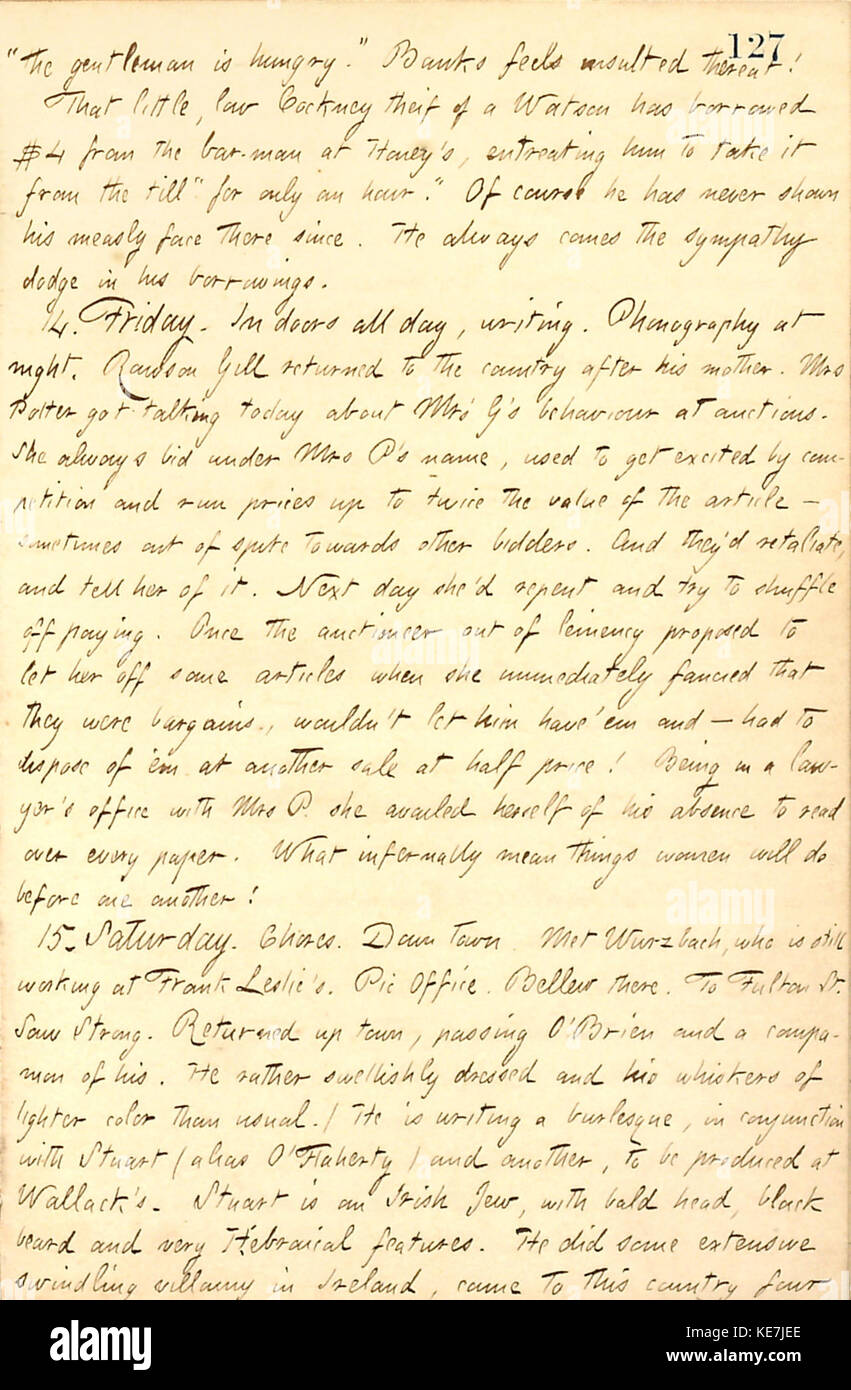 127
"the gentleman is hungry." Banks feels insulted thereat!
That little, low Cockney theif of a Watson has borrowed
$4 from the bar-man at Honey's, entreating him to take it
from the till "for only an hour." Of course he has never shown
his measly face there since. He always comes the sympathy
dodge in his borrowings.
14. Friday. In doors all day, writing. Phonography at
night. Rawson Gill returned to the country after his mother. Mrs
Potter got talking today about Mrs G's behaviour at auctions.
She always bid under Mrs P's name, used to get excited by com-
petition and run prices up to twice the value of the article —
sometimes out of spite towards other bidders. And they'd retaliate,
and tell her of it. Next day she'd repent and try to shuffle
off paying. Once the auctioneer out of leinency proposed to
let her off some articles when she immediately fancied that
they were bargains, wouldn't let him have 'em and — had to
dispose of 'em at another sale at half price! Being in a law-
yer's office with Mrs P. she availed herself of his absence to read
over every paper. What infernally mean things women will do
before one another!
15. Saturday. Chores. Down town. Met Wurzbach, who is still
working at Frank Leslie's. Pic Office. Bellew there. To Fulton St.
Saw Strong. Returned up town, passing O'Brien and a compa-
nion of his. He rather swellishly dressed and his whiskers of
lighter color than usual. / He is writing a burlesque, in conjunction
with Stuart (alias O'Flaherty) and another, to be produced at
Wallack's. Stuart is an Irish Jew, with bald head, black
beard and very Hebraical features. He did some extensive
swindling villainy in Ireland, came to this country four
alamy
alamy
Image ID: KE7JEE
www.alamy.com